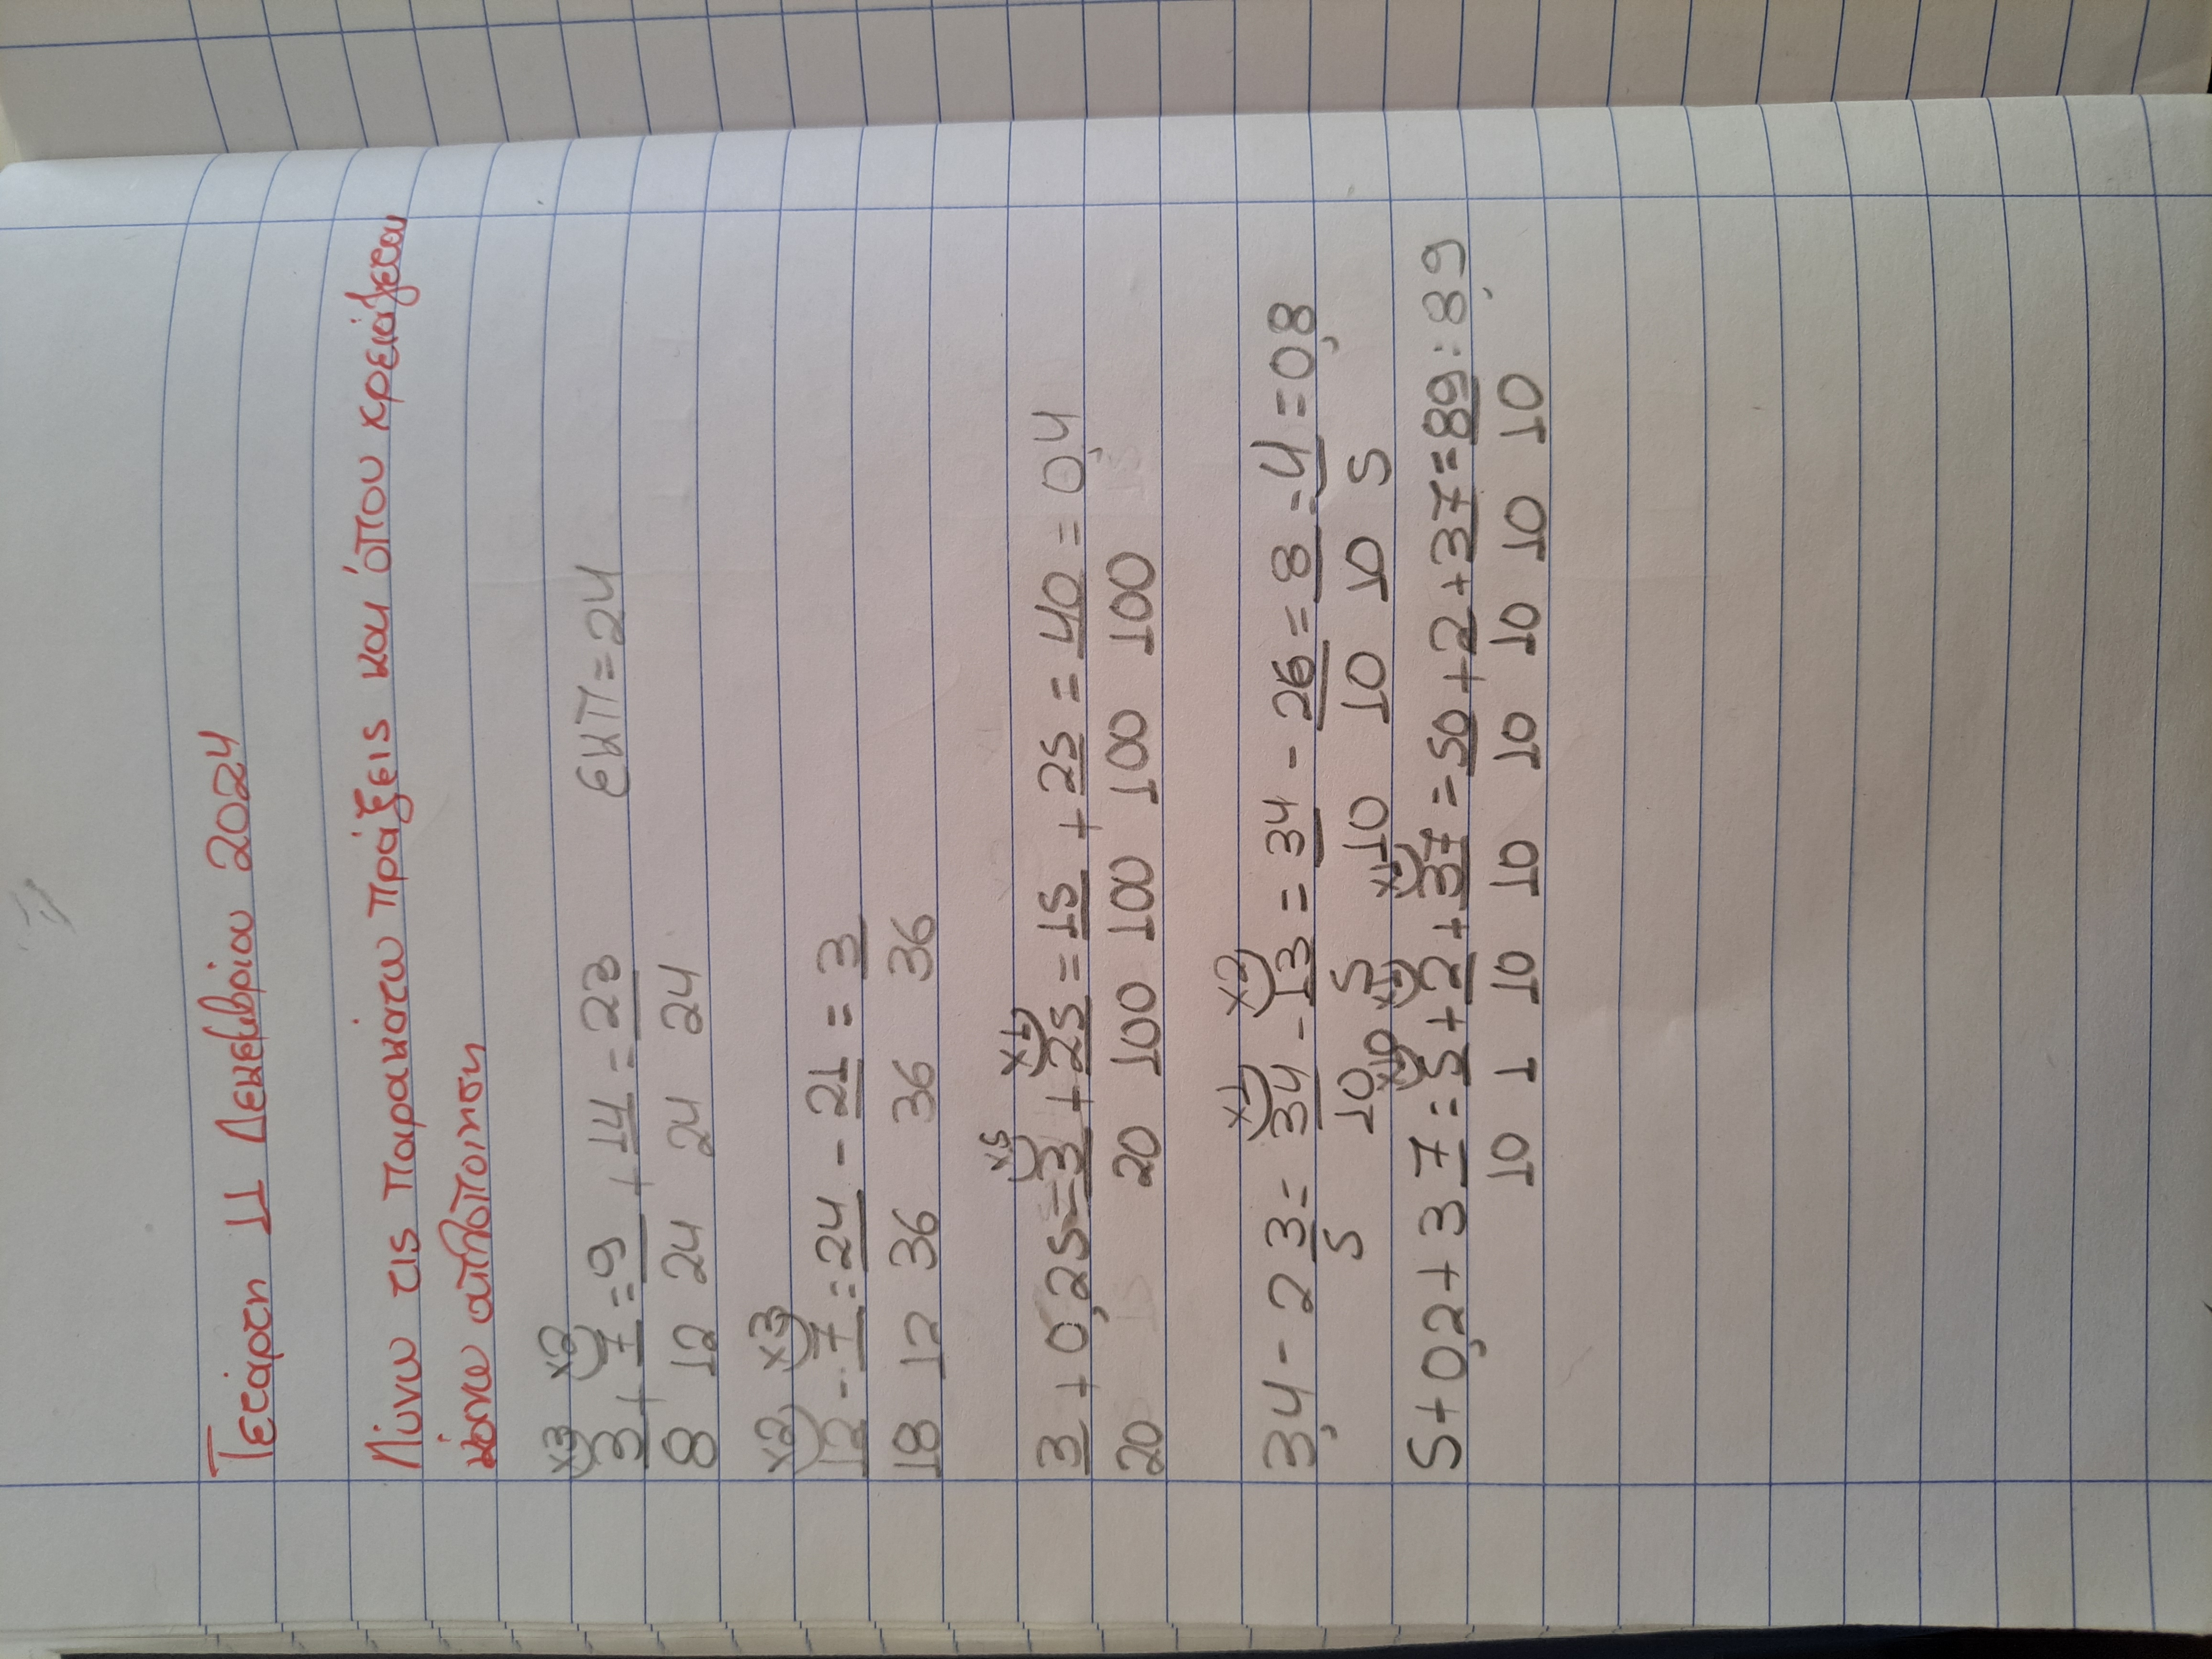 Τετάρτη 11 Δεκεμβρίου 2024
Λύνω τις παρακάτω πράξεις και όπου χρειάζεται
κάνω απλοποιηση
x3 x2
3/8 + 7/12 = 9/24 + 14/24 = 23/24 ΕΚΠ = 24
x2 x3
12/18 - 7/12 = 24/36 - 21/36 = 3/36
x5 x1
3/20 + 0,25 = 3/20 + 25/100 = 15/100 + 25/100 = 40/100 = 0,4
x1 x2
3,4 - 2 3/5 = 34/10 - 13/5 = 34/10 - 26/10 = 8/10 = 4/5 = 0,8
x10 x1 x1
5 + 0,2 + 3 7/10 = 5/1 + 2/10 + 37/10 = 50/10 + 2/10 + 37/10 = 89/10 = 8,9